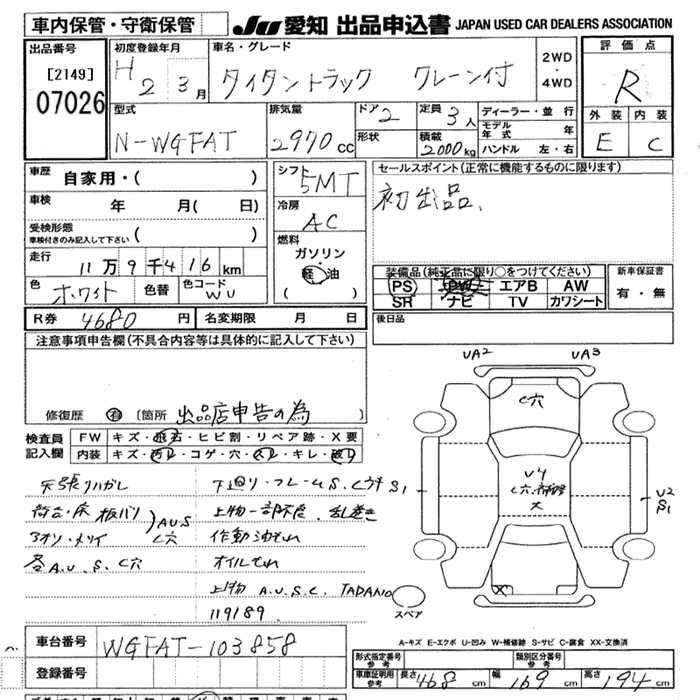 車内保管・守衛保管
JU 愛知 出品申込書 JAPAN USED CAR DEALERS ASSOCIATION
出品番号 初度登録年月 車名・グレード 評価点
[2149] H 2 3月 タイタントラック クレーン付 2WD・4WD R
07026
型式 排気量 ドア 2 定員 3人 ディーラー・並行 外装 内装
N-WGFAT 2970cc 形状 積載 2000kg モデル年式 年 E C
ハンドル 左・右
車歴 自家用・( ) シフト 5MT セールスポイント(正常に機能するものに限ります)
車検 年 月( 日) 冷房 AC 初出品、
受検形態 車検付きのみ記入して下さい ( )
燃料 ガソリン
走行 11万9千416km 軽油
( ) 装備品(純正品に限り○をつけてください) 新車保証書
色 ホワイト 色替 色コード WU PS PW エアB AW 有・無
SR ナビ TV カワシート
R券 4680円 名変期限 月 日 後日品
注意事項申告欄(不具合内容等は具体的に記入して下さい)
修復歴 有 〔箇所 出品店申告の為 〕
検査員記入欄 FW キズ・飛石・ヒビ割・リペア跡・X要
内装 キズ・汚レ・コゲ・穴・スレ・キレ・破レ
天張りハガレ 下廻り・フレームS.C
荷台・床 板バリ
アオリ A.U.S C穴 作動油モレ
各A.U.S.C穴 オイルモレ
上物 A.U.S.C. TADANO
119189
UA2 UA3
C穴
U4
C穴
S1
U2
S1
X
スペア
A-キズ E-エクボ U-凹み W-補修跡 S-サビ C-腐食 XX-交換済
車台番号 WGFAT-103858
登録番号
形式指定番号 参考 類別区分番号 参考
車庫証明用 参考 長さ 468cm 幅 169cm 高さ 194cm